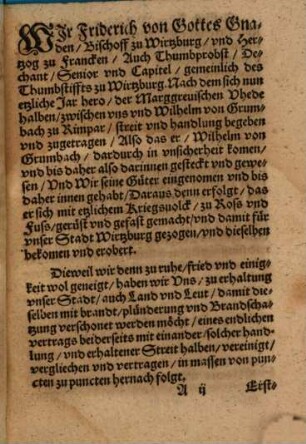 WJr Friderich von Gottes Gna-
den / Bischoff zu Wirtzburg / vnd Her-
tzog zu Francken / Auch Thumbprobst / De-
chant / Senior vnd Capitel / gemeinlich des
Thumbstiffts zu Wirtzburg. Nach dem sich nun
etzliche Jar hero / der Marggreuischen Vhede
halben / zwischen vns vnd Wilhelm von Grum-
bach zu Rimpar / streit vnd handlung begeben
vnd zugetragen / Also das er / Wilhelm von
Grumbach / dardurch in vnsicherheit komen /
vnd bis daher also darinnen gesteckt vnd gewe-
sen / Vnd Wir seine Güter eingenomen vnd bis
daher innen gehabt / Daraus denn erfolgt / das
er sich mit etzlichem Kriegsuolck / zu Ross vnd
Fuss / gerüst vnd gefast gemacht / vnd damit für
vnser Stadt Wirtzburg gezogen / vnd dieselben
bekomen vnd erobert.
Dieweil wir denn zu ruhe / fried vnd einig-
keit wol geneigt / haben wir Vns / zu erhaltung
vnser Stadt / auch Land vnd Leut / damit die-
selben mit brandt / plünderung vnd Brandscha-
tzung verschonet werden möcht / eines endlichen
vertrags beiderseits mit einander / solcher hand-
lung / vnd erhaltener Streit halben / vereinigt /
verglichen vnd vertragen / in massen von pun-
cten zu puncten hernach folgt.
A ij Erst-